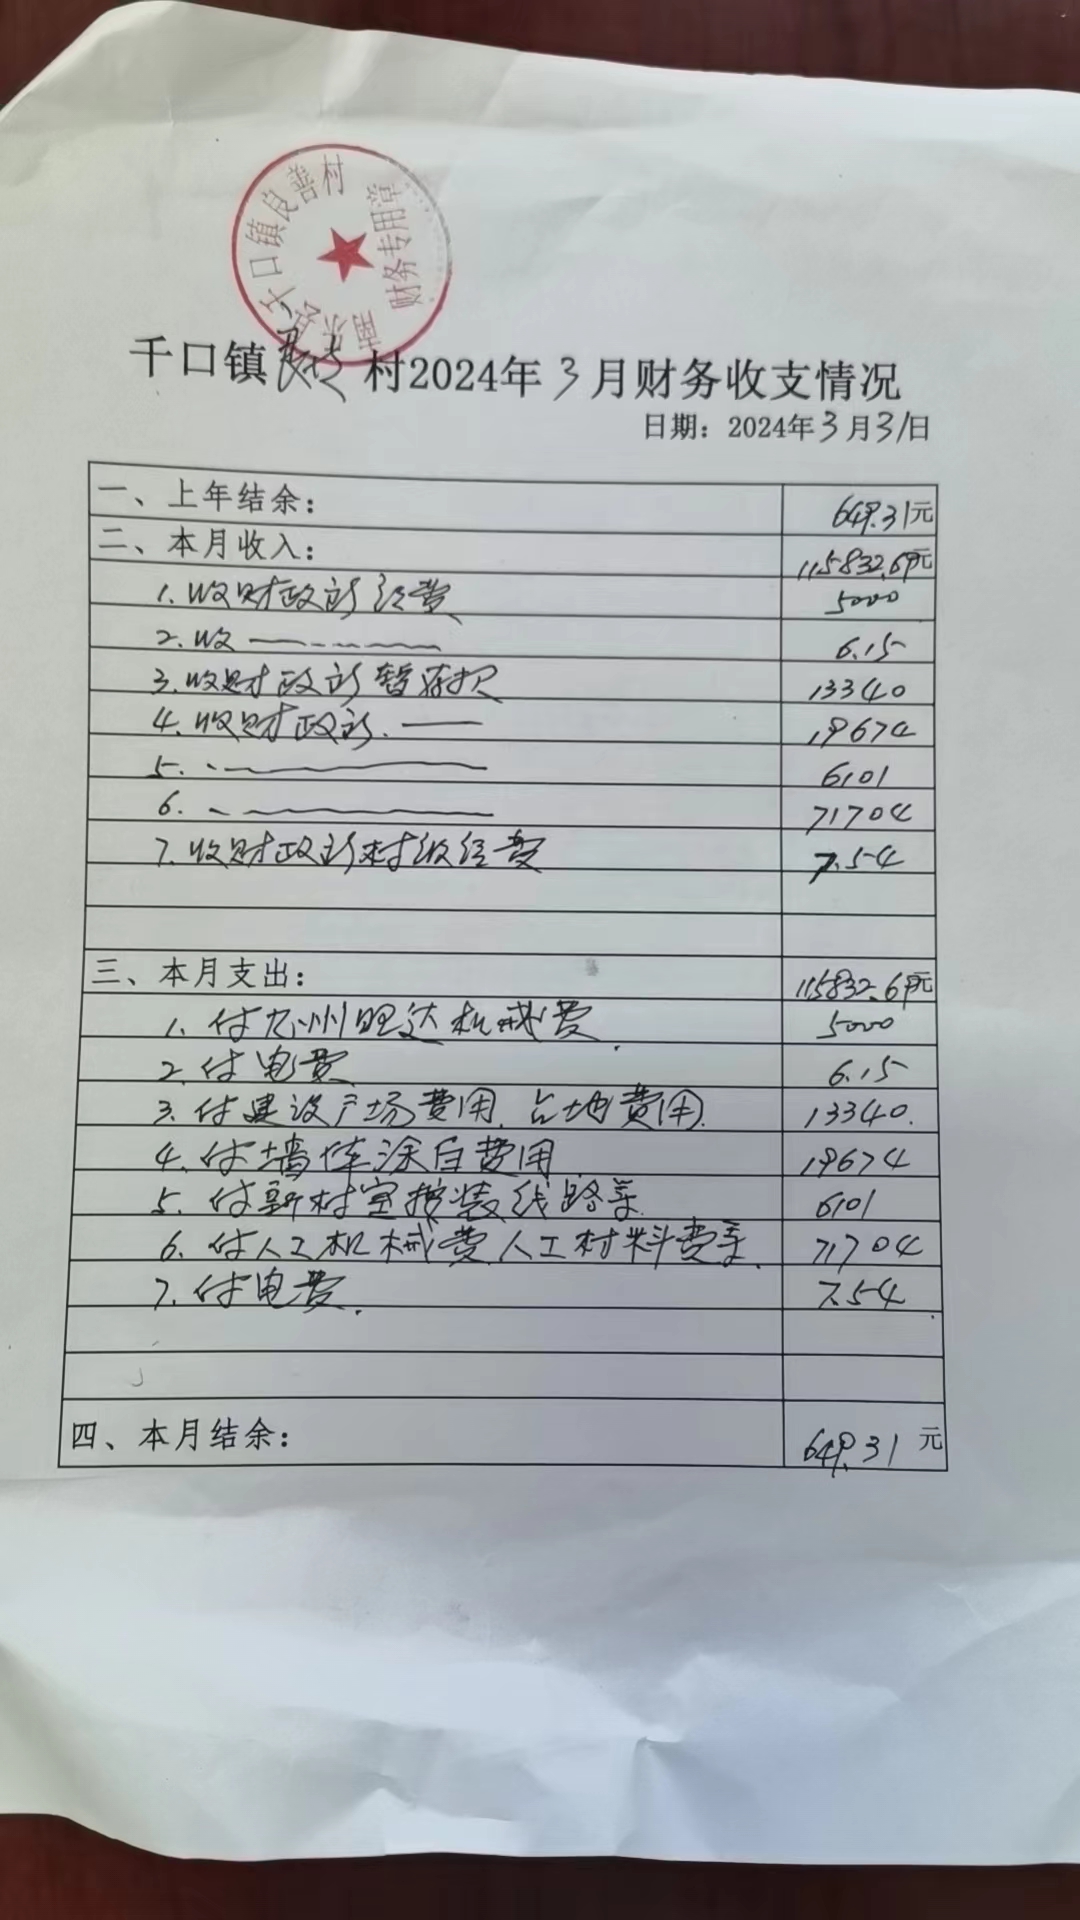 南乐县千口镇良善村
财务专用章
千口镇良善村2024年3月财务收支情况
日期：2024年3月31日
一、上年结余： 649.31元
二、本月收入： 115832.69元
1.收财政所经费 5000
2.收 — 6.15
3.收财政所暂存款 13340
4.收财政所. — 19674
5. — 6101
6. — 71704
7.收财政所村级经费 7.54
三、本月支出： 115832.69元
1.付九州旺达机械费. 5000
2.付电费 6.15
3.付建设广场费用.占地费用. 13340.
4.付墙体涂白费用 19674
5.付新村室按装线路等. 6101
6.付人工机械费人工材料费等. 71704
7.付电费. 7.54
四、本月结余： 649.31元